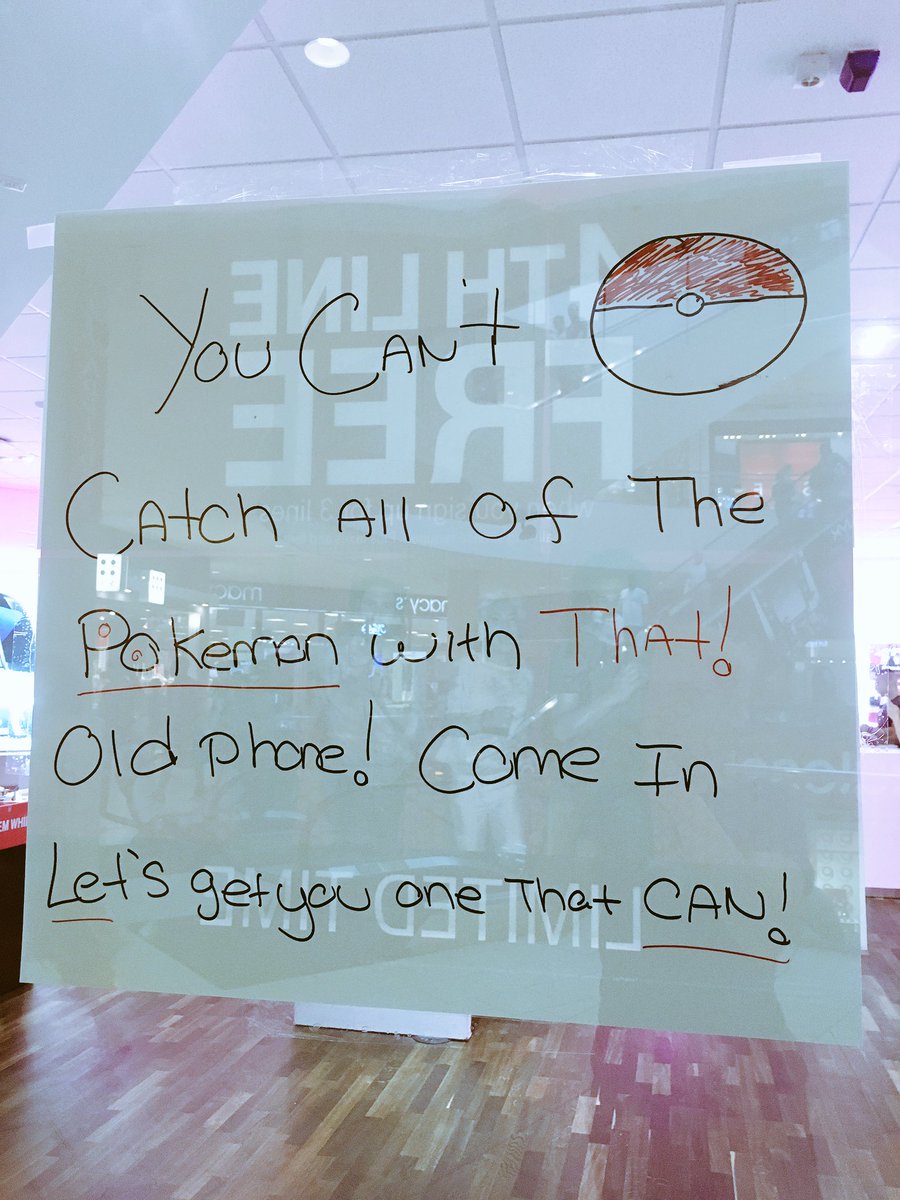 You Can't
Catch All Of The
Pokemon with That!
Old phone! Come In
Let's get you one That CAN!
4TH LINE
FREE
LIMITED TIME
macy's
mac
EM WHI